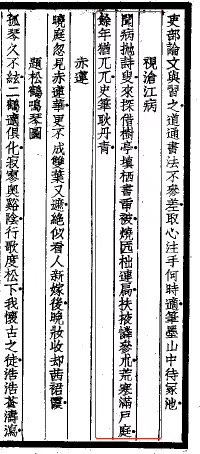 吏部論文與習之道通書法不參差取心注手何時適筆墨山中待冢池
視滄江病
聞病抛詩叟來探借樹亭填栖書帶被燒远拙連扁扶掖憐參朮荒寒滿戶庭
餘年猶兀兀史筆耿丹青
赤蓮
曉庭忽見赤蓮華更不成雙葉又遮絕似看人新嫁後晚妝收却茜裙霞
題松鶴鳴琴圖
孤琴久不絃二鶴適俱化寂寥奧谿陰行歌度松下我懷古之徒浩浩蒼濤瀉